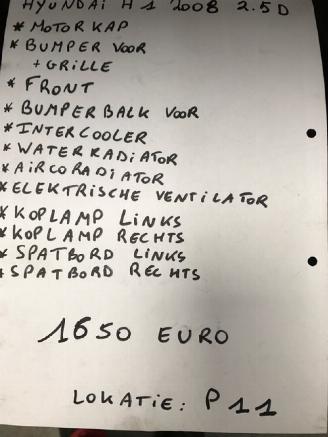 HYUNDAI H1 2008 2.5D
* MOTORKAP
* BUMPER VOOR
+ GRILLE
* FRONT
* BUMPERBALK VOOR
* INTERCOOLER
* WATERRADIATOR
* AIRCORADIATOR
* ELEKTRISCHE VENTILATOR
* KOPLAMP LINKS
* KOPLAMP RECHTS
* SPATBORD LINKS
* SPATBORD RECHTS
1650 EURO
LOKATIE: P11